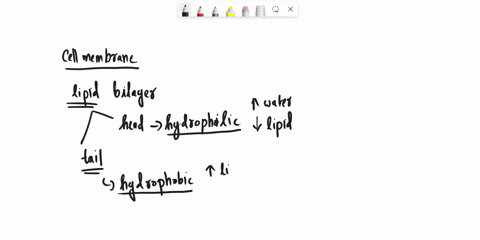 Cell membrane
lipid bilayer
head → hydrophilic ↑ water
↓ lipid
tail
↳ hydrophobic ↑ li